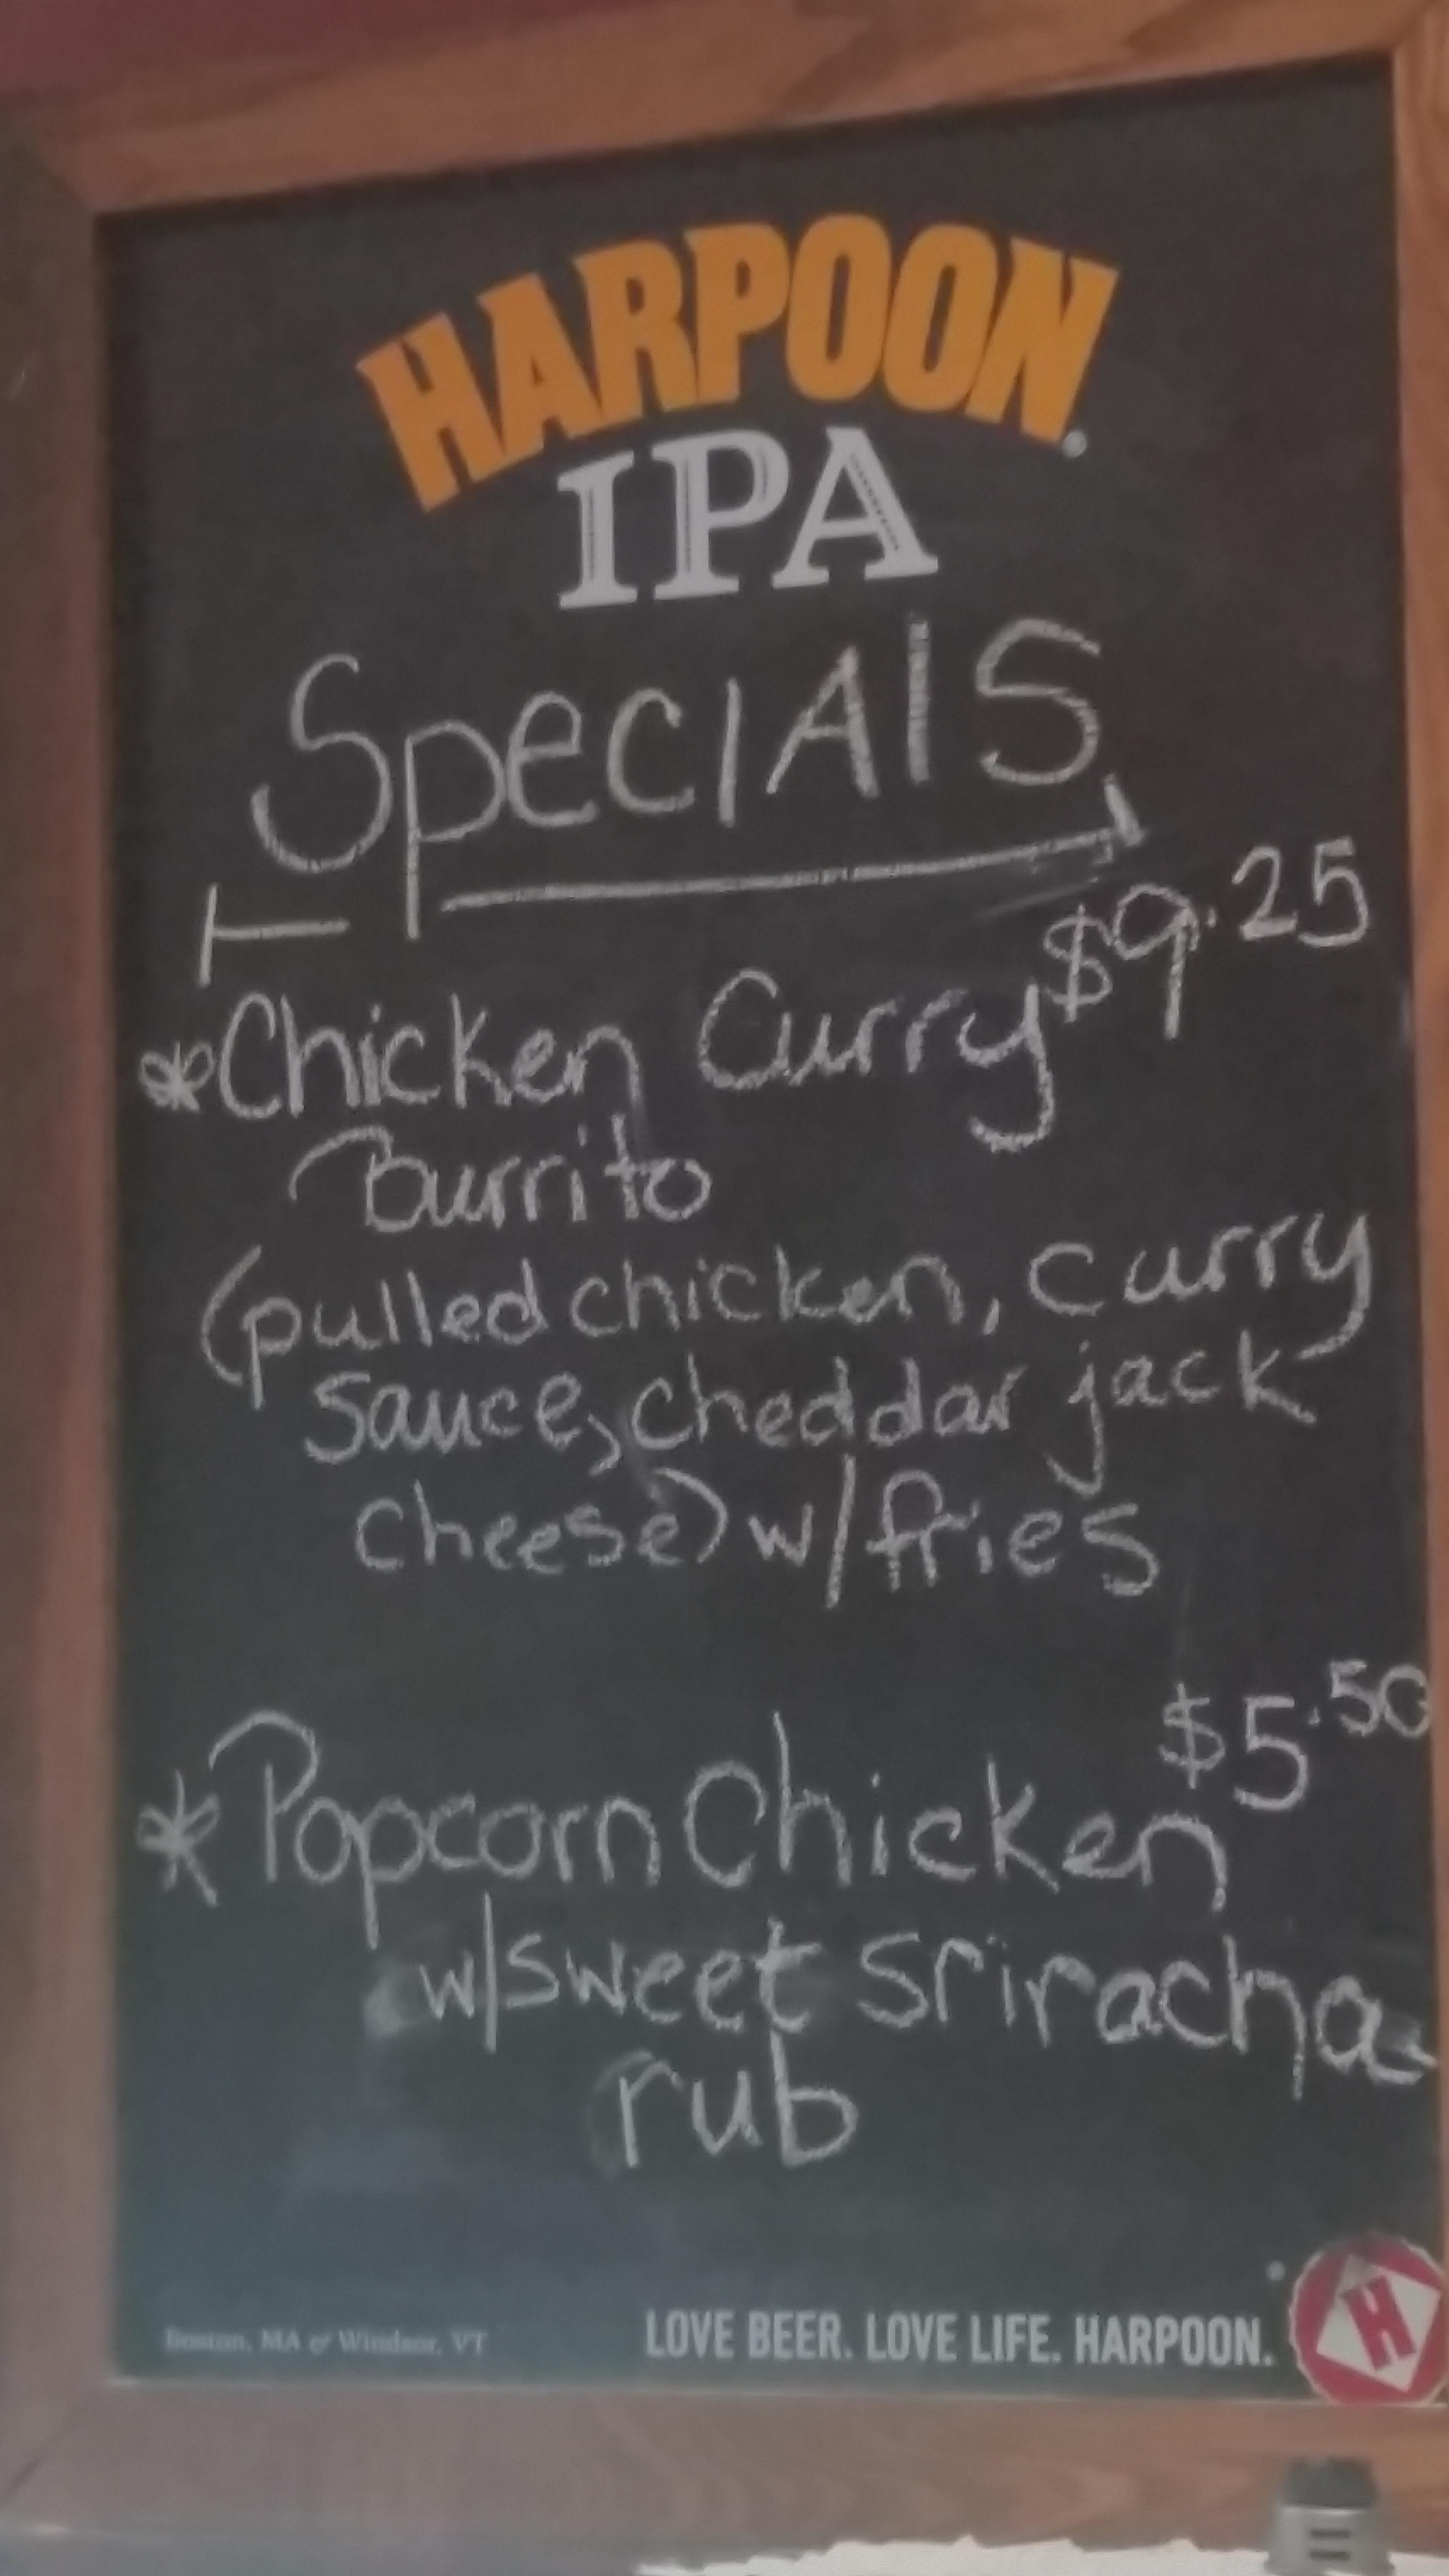 HARPOON
IPA
SpecIAlS
$9.25
*Chicken Curry
Burrito
(pulled chicken, curry
sauce, cheddar jack
cheese) w/fries
$5.50
*Popcorn Chicken
w/sweet sriracha
rub
Boston, MA & Windsor, VT
LOVE BEER. LOVE LIFE. HARPOON.
H